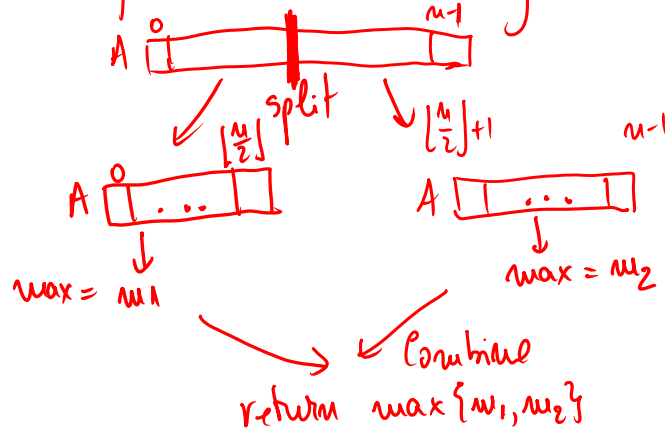 0 n-1
A
split
⌊n/2⌋ ⌊n/2⌋+1 n-1
0
A ... A ...
max = m1 max = m2
Combine
return max{m1, m2}